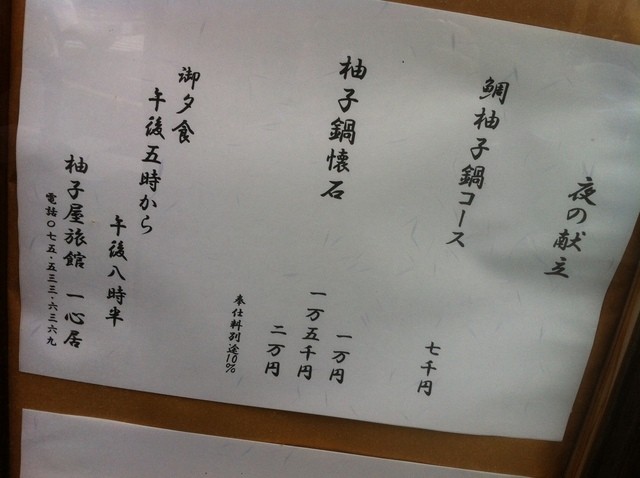 夜の献立
鯛柚子鍋コース
七千円
柚子鍋懐石
一万円
一万五千円
二万円
奉仕料別途10%
御夕食
午後五時から
午後八時半
柚子屋旅館 一心居
電話〇七五・五三三・六三六九